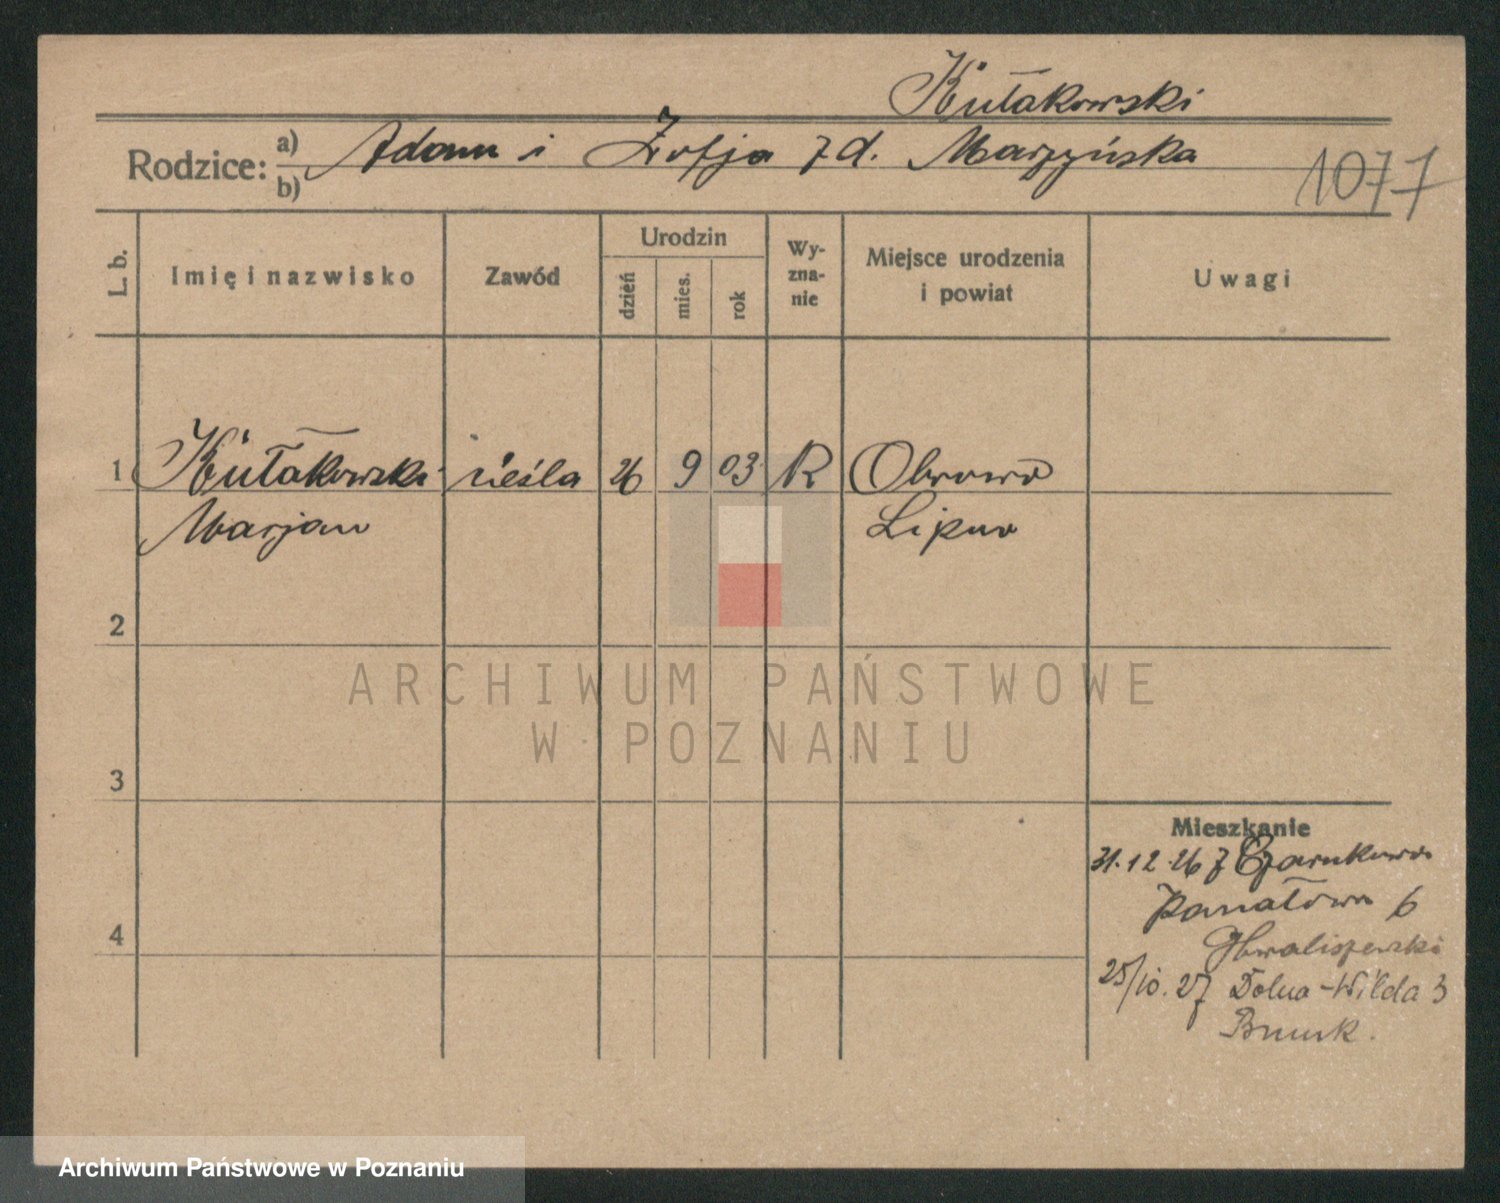 Kułakowski
Rodzice: a) b) Adam i Zofja z d. Marzyńska
1077
L. b.
Imię i nazwisko
Zawód
Urodzin
dzień
mies.
rok
Wy-
zna-
nie
Miejsce urodzenia
i powiat
Uwagi
1 Kułakowski cieśla 26 9 03 R Obrowo
Marjan Lipno
2
3
4
Mieszkanie
31.12.26 z Czarnkowa
6
Chwaliszewski
25/10.27 Dolna-Wilda 3
ARCHIWUM PAŃSTWOWE
W POZNANIU
Archiwum Państwowe w Poznaniu